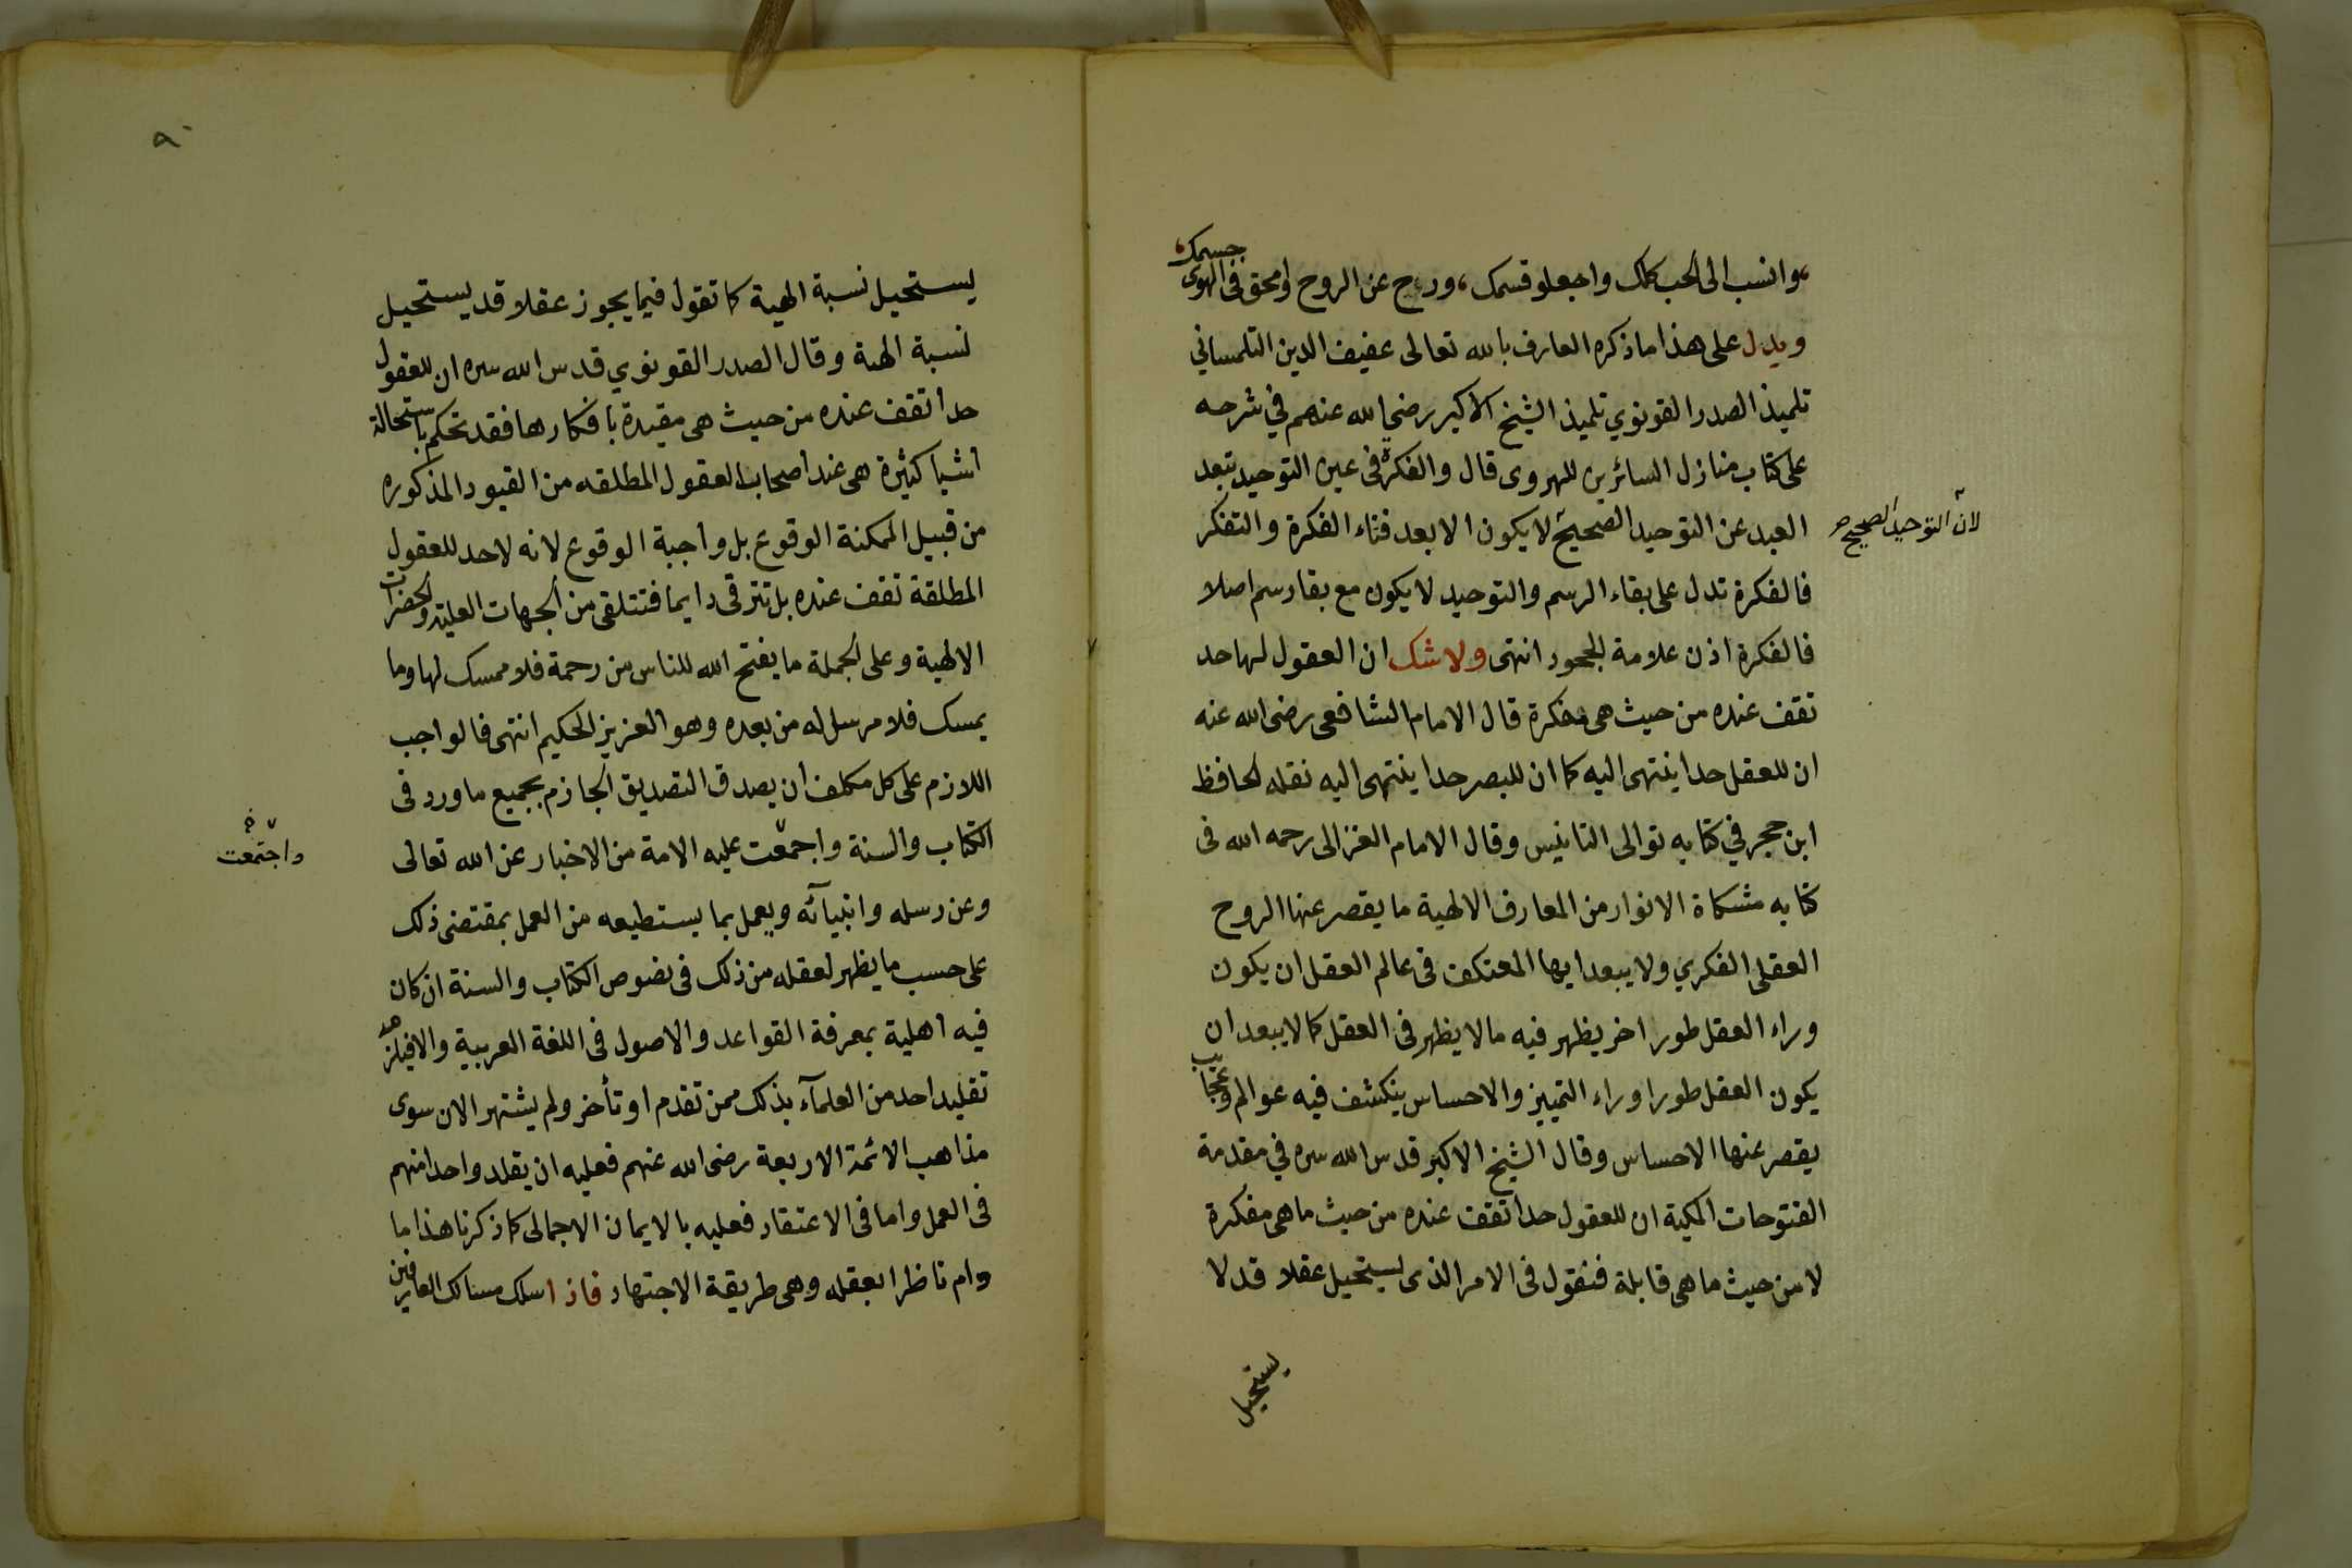 ،وانسب الى الحب كلك واجعلو قسمك ، ودع عن الروح وامحق فى الهوى جسمك،
ويدل على هذا ما ذكره العارف بالله تعالى عفيف الدين التلمساني
تلميذ الصدر القونوي تلميذ الشيخ الاكبر رضي الله عنهم في شرحه
على كتاب منازل السائرين للهروى قال والفكرة فى عين التوحيد تبعد
العبد عن التوحيد الصحيح لا يكون الا بعد فناء الفكرة والتفكر
لان التوحيد الصحيح
فالفكرة تدل على بقاء الرسم والتوحيد لا يكون مع بقا رسم اصلا
فالفكرة اذن علامة الجحود انتهى ولا شك ان العقول لها حد
تقف عنده من حيث هى مفكرة قال الامام الشافعى رضى الله عنه
ان للعقل حدا ينتهى اليه كما ان للبصر حدا ينتهى اليه نقله الحافظ
ابن حجر في كتابه توالى التانيس وقال الامام الغزالى رحمه الله فى
كتابه مشكاة الانوار من المعارف الالهية ما يقصر عنها الروح
العقلى الفكري ولا يبعد ايها المعتكف فى عالم العقل ان يكون
وراء العقل طور اخر يظهر فيه مالا يظهر فى العقل كما لا يبعد ان
يكون العقل طورا وراء التمييز والاحساس ينكشف فيه عوالم وعجايب
يقصر عنها الاحساس وقال الشيخ الاكبر قدس الله سره في مقدمة
الفتوحات المكية ان للعقول حدا تقف عنده من حيث ما هى مفكرة
لا من حيث ما هى قابلة فنقول فى الامر الذى يستحيل عقلا قد لا
يستحيل
٩٠
يستحيل نسبة الهية كما تقول فيما يجوز عقلا قد يستحيل
نسبة الهية وقال الصدر القونوي قدس الله سره ان للعقول
حدا تقف عنده من حيث هى مقيدة بافكارها فقد تحكم باستحالة
اشيا كثيرة هى عند اصحاب العقول المطلقه من القيود المذكوره
من قبيل الممكنة الوقوع بل واجبة الوقوع لانه لا حد للعقول
المطلقة تقف عنده بل تترقى دايما فتتلقى من الجهات العلية والحضرات
الالهية وعلى الجملة ما يفتح الله للناس من رحمة فلا ممسك لها وما
يمسك فلا مرسل له من بعده وهو العزيز الحكيم انتهى فالواجب
اللازم على كل مكلف ان يصدق التصديق الجازم بجميع ما ورد فى
الكتاب والسنة واجمعت عليه الامة من الاخبار عن الله تعالى
واجتمعت
وعن رسله وانبيآئه ويعمل بما يستطيعه من العمل بمقتضى ذلك
على حسب ما يظهر لعقله من ذلك فى نصوص الكتاب والسنة ان كان
فيه اهلية بمعرفة القواعد والاصول فى اللغة العربية والا فيلزمه
تقليد احد من العلمآء بذلك ممن تقدم او تأخر ولم يشتهر الان سوى
مذاهب الائمة الاربعة رضى الله عنهم فعليه ان يقلد واحدا منهم
فى العمل واما فى الاعتقاد فعليه بالايمان الاجمالى كما ذكرنا هذا ما
دام ناظرا بعقله وهى طريقة الاجتهاد فاذا سلك مسالك العارفين